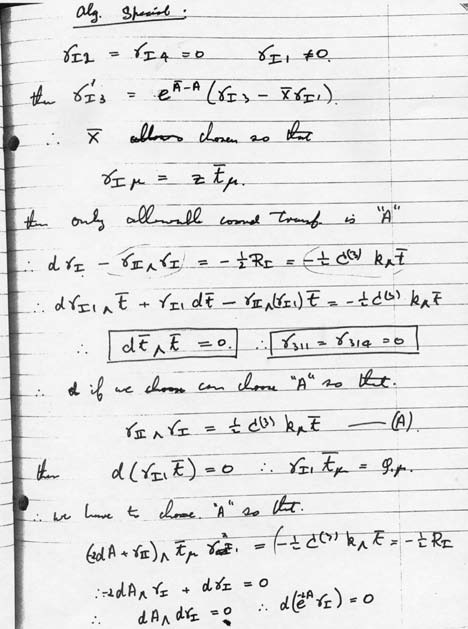 Alg. Special:
γ_I2 = γ_I4 = 0 γ_I1 ≠ 0.
then γ'_I3 = e^{Ā-A} (γ_I3 - x̄ γ_I1).
∴ x̄ chosen so that
γ_Iμ = z t̄_μ.
then only allowable coord transf. is "A"
∴ dγ_I - γ_II∧γ_I = -½R_I = -½C^(3) k∧t̄
∴ dγ_I1∧t̄ + γ_I1 dt̄ - γ_II∧(γ_I1)t̄ = -½C^(3) k∧t̄
∴ dt̄∧t̄ = 0. ∴ γ_311 = γ_314 = 0
∴ if we can choose "A" so that.
γ_II∧γ_I = ½C^(3) k∧t̄ — (A).
then d(γ_I1 t̄) = 0 ∴ γ_I1 t̄_μ = φ,μ.
∴ we have to choose "A" so that.
(-2dA + γ_II)∧t̄_μ = (-½C^(3) k∧t̄ = -½R_I
∴ -2dA∧γ_I + dγ_I = 0
∴ dA∧dγ_I = 0 ∴ d(e^{-2A} γ_I) = 0